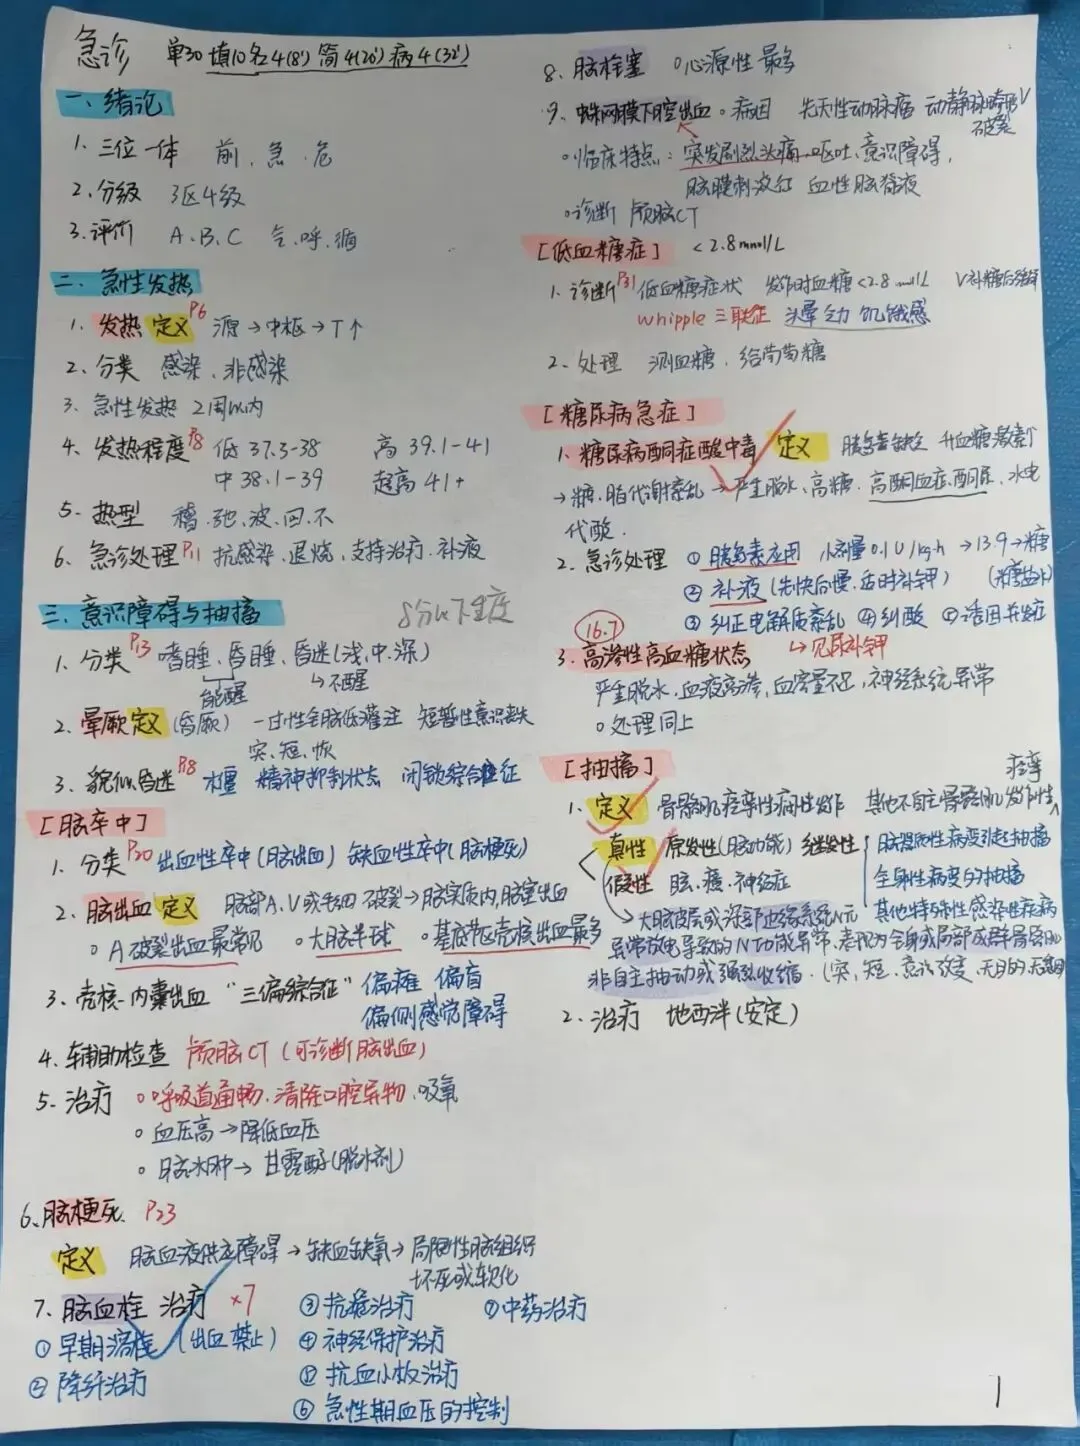 急诊 单30 填10 名4(8') 简4(20') 病4(32')
一、绪论
1. 三位一体 前、急、危
2. 分级 3区4级
3. 评价 A、B、C 气、呼、循
二、急性发热
1. 发热定义 P6 源→中枢→T↑
2. 分类 感染、非感染
3. 急性发热 2周以内
4. 发热程度 P8 低 37.3-38 高 39.1-41
中 38.1-39 超高 41+
5. 热型 稽、弛、波、回、不
6. 急诊处理 P11 抗感染、退烧、支持治疗、补液
三、意识障碍与抽搐 8分以下重度
1. 分类 P13 嗜睡、昏睡、昏迷(浅、中、深)
能醒 ↳不醒
2. 晕厥定义(昏厥) 一过性全脑低灌注 短暂性意识丧失
突、短、恢
3. 貌似昏迷 P18 木僵 精神抑制状态 闭锁综合征
[脑卒中]
1. 分类 P20 出血性卒中(脑出血) 缺血性卒中(脑梗死)
2. 脑出血定义 脑部A、V或毛细破裂→脑实质内,脑室出血
○A破裂出血最常见 ○大脑半球 ○基底节区壳核出血最多
3. 壳核-内囊出血 “三偏综合征” 偏瘫 偏盲
偏侧感觉障碍
4. 辅助检查 颅脑CT (可诊断脑出血)
5. 治疗 ○呼吸道通畅、清除口腔异物、吸氧
○血压高→降低血压
○脑水肿→甘露醇(脱水剂)
6. 脑梗死 P23
定义 脑血液供应障碍→缺血缺氧→局限性脑组织
坏死或软化
7. 脑血栓 治疗 ×7 ③抗凝治疗 ⑦中药治疗
①早期溶栓 (出血禁止) ④神经保护治疗
②降纤治疗 ⑤抗血小板治疗
⑥急性期血压的控制
8. 脑栓塞 ○心源性最多
9. 蛛网膜下腔出血 ○病因 先天性动脉瘤 动静脉畸形
破裂
○临床特点: 突发剧烈头痛、呕吐、意识障碍,
脑膜刺激征 血性脑脊液
○诊断 颅脑CT
[低血糖症] <2.8mmol/L
1. 诊断 P31 低血糖症状 发作时血糖<2.8mmol/L V补糖后缓解
whipple 三联征 头晕乏力 饥饿感
2. 处理 测血糖、给葡萄糖
[糖尿病急症]
1. 糖尿病酮症酸中毒 定义 胰岛素缺乏 升血糖激素↑
→糖、脂代谢紊乱→严重脱水、高糖、高酮血症、酮尿、水电
代酸.
2. 急诊处理 ①胰岛素应用 小剂量0.1U/kg·h→13.9→糖
②补液(先快后慢、适时补钾) (糖盐水)
③纠正电解质紊乱 ④纠酸 ⑤诱因并发症
16.7 ↳见尿补钾
3. 高渗性高血糖状态
严重脱水、血液高渗、血容量不足、神经系统异常
○处理同上
[抽搐]
痉挛
1. 定义 骨骼肌痉挛性痫性发作 其他不自主骨骼肌发作性
真性 原发性(脑功能) 继发性 脑器质性病变引起抽搐
假性 脑、癔、神经症 全身性病变的抽搐
其他特殊性感染性疾病
大脑皮层或深部边缘系统N元
异常放电导致的N功能异常、表现为全身或局部成群骨骼肌
非自主抽动或强烈收缩. (突、短、意识改变、无目的
2. 治疗 地西泮(安定)
1